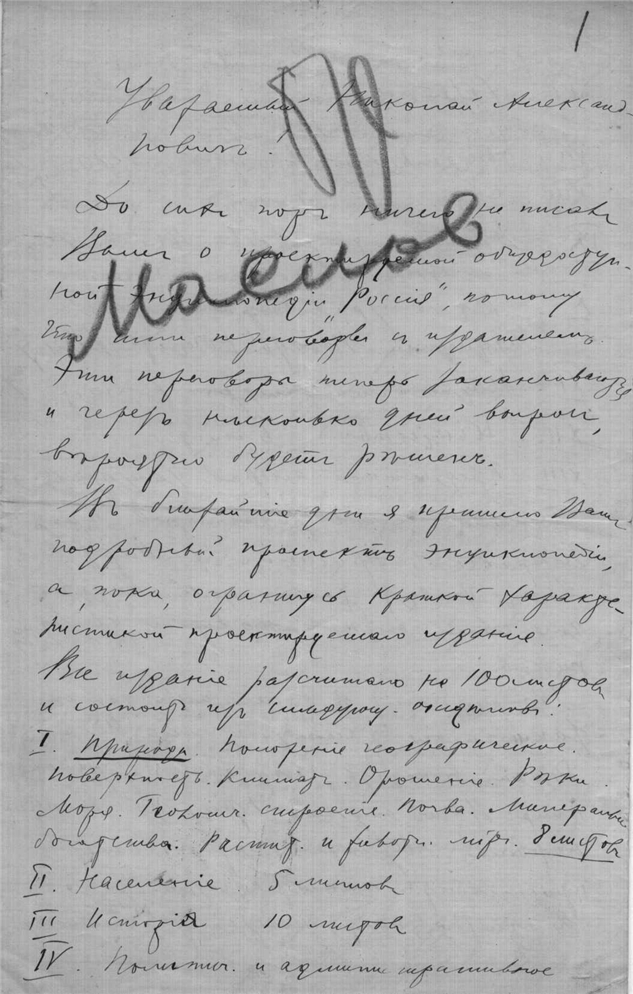 1
Уважаемый Николай Александ-
ровичъ!
До сихъ поръ ничего не писалъ
Вамъ о проектируемой общедоступ-
ной энциклопедіи „Россія", потому
Маслов
что шли переговоры съ издателемъ.
Эти переговоры теперь заканчиваются
и черезъ нѣсколько дней вопросъ,
вѣроятно будетъ рѣшенъ.
Въ ближайшіе дни я пришлю Вамъ
подробный проспектъ энциклопедіи,
а, пока, ограничусь краткой характе-
ристикой проектируемаго изданія.
Все изданіе расчитано на 100 листовъ
и состоитъ изъ слѣдующ. отдѣловъ:
I. Природа. Положеніе географическое.
Поверхность. Климатъ. Орошеніе. Рѣки.
Моря. Геологич. строеніе. Почва. Минеральн.
богатства. Растит. и животн. міръ. 8 листовъ
II. Населеніе 5 листовъ
III Исторія 10 листовъ
IV. Политич. и административное